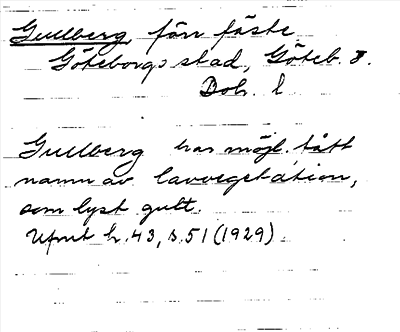 Gullberg, förr fäste
Göteborgs stad, Göteb. o.
Boh. l
Gullberg har möjl. fått
namn av lavvegetation,
som lyst gult.
h. 43, s. 51 (1929)